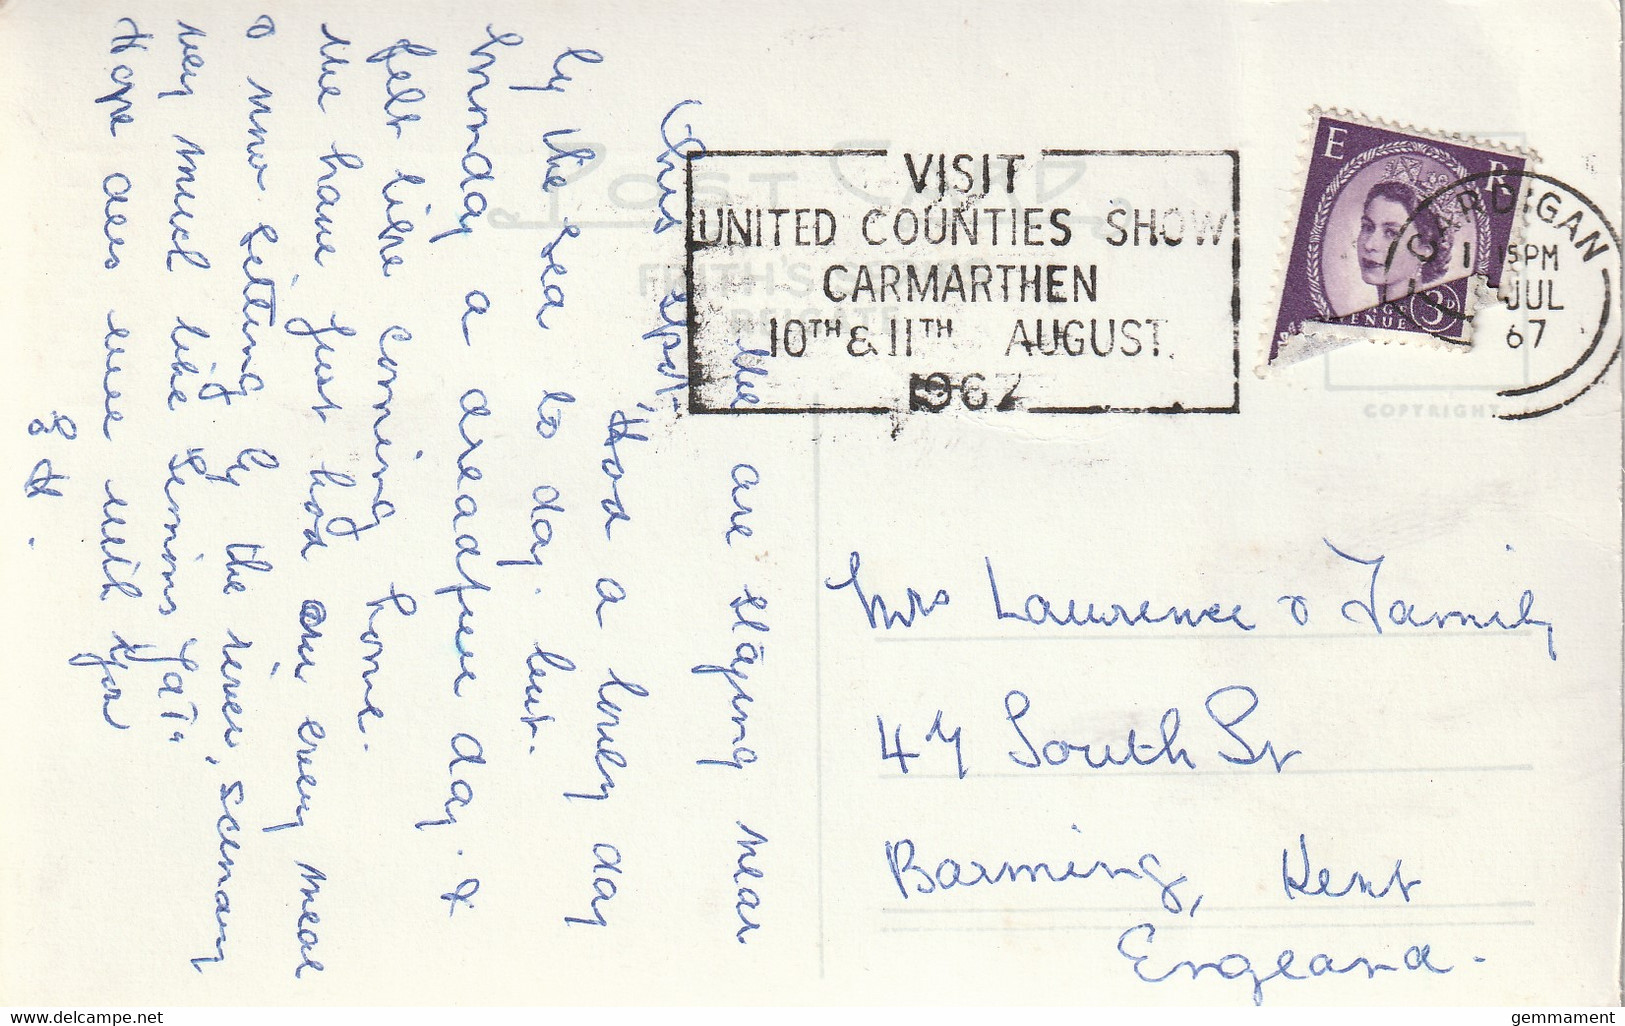 POST CARD
FRITH'S SERIES
REIGATE
VISIT
UNITED COUNTIES SHOW
CARMARTHEN
10TH & 11TH AUGUST
1967
E R
POSTAGE REVENUE
3D
CARDIGAN
15PM
JUL
67
COPYRIGHT
We are staying near
this spot. Had a lovely day
by the sea to day. but.
Sunday a dreadful day. &
felt like coming home.
We have just had our evening meal
& now sitting by the river, scenary
very much like Simons Yat"
Hope all is well with you
E H.
Mrs Laurence & Family
47 South St
Barming, Kent
England.
delcampe.net
gemmament